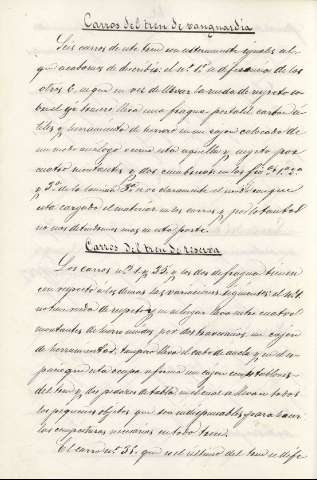 Carros del tren de vanguardia
Seis carros de este tren son esteramente iguales al
que acabamos de describir: el nº 1º se diferencia de los
otros 6, en que en vez de llevar la rueda de repeto so
bre el eje trasero lleva una fragua portatil, carbon, ú
tiles y herramienta de herrero en un cajon colocado de
un modo análogo como está aquella y sujeto por
cuatro montantes y dos cumbreras: en las figs. 1ª 2ª
y 3ª de la lamina 3ª se ve claramente el modo en que
está cargado el material en los carros, y por lo tanto
no nos detendremos mas en esta parte.
Carros del tren de reserva
Los carros nº 1 y 35, y los dos de fragua tienen
con respecto á los demas las variaciones siguientes: el nº 1
no tiene rueda de repeto y en su lugar lleva entre cuatro
montantes de hierro unidos por dos travesaños un cajon
de herramientas; tampoco lleva el bote de ancla, y en el
parage que esta ocupa se forma un cajon con tablones
del tren y dos pedazos de tabla en el cual se llevan todos
los pequeños objetos que son indispensables para hacer
las composturas necesarias en todo tren.
El carro nº 35, que es el ultimo del tren se dife